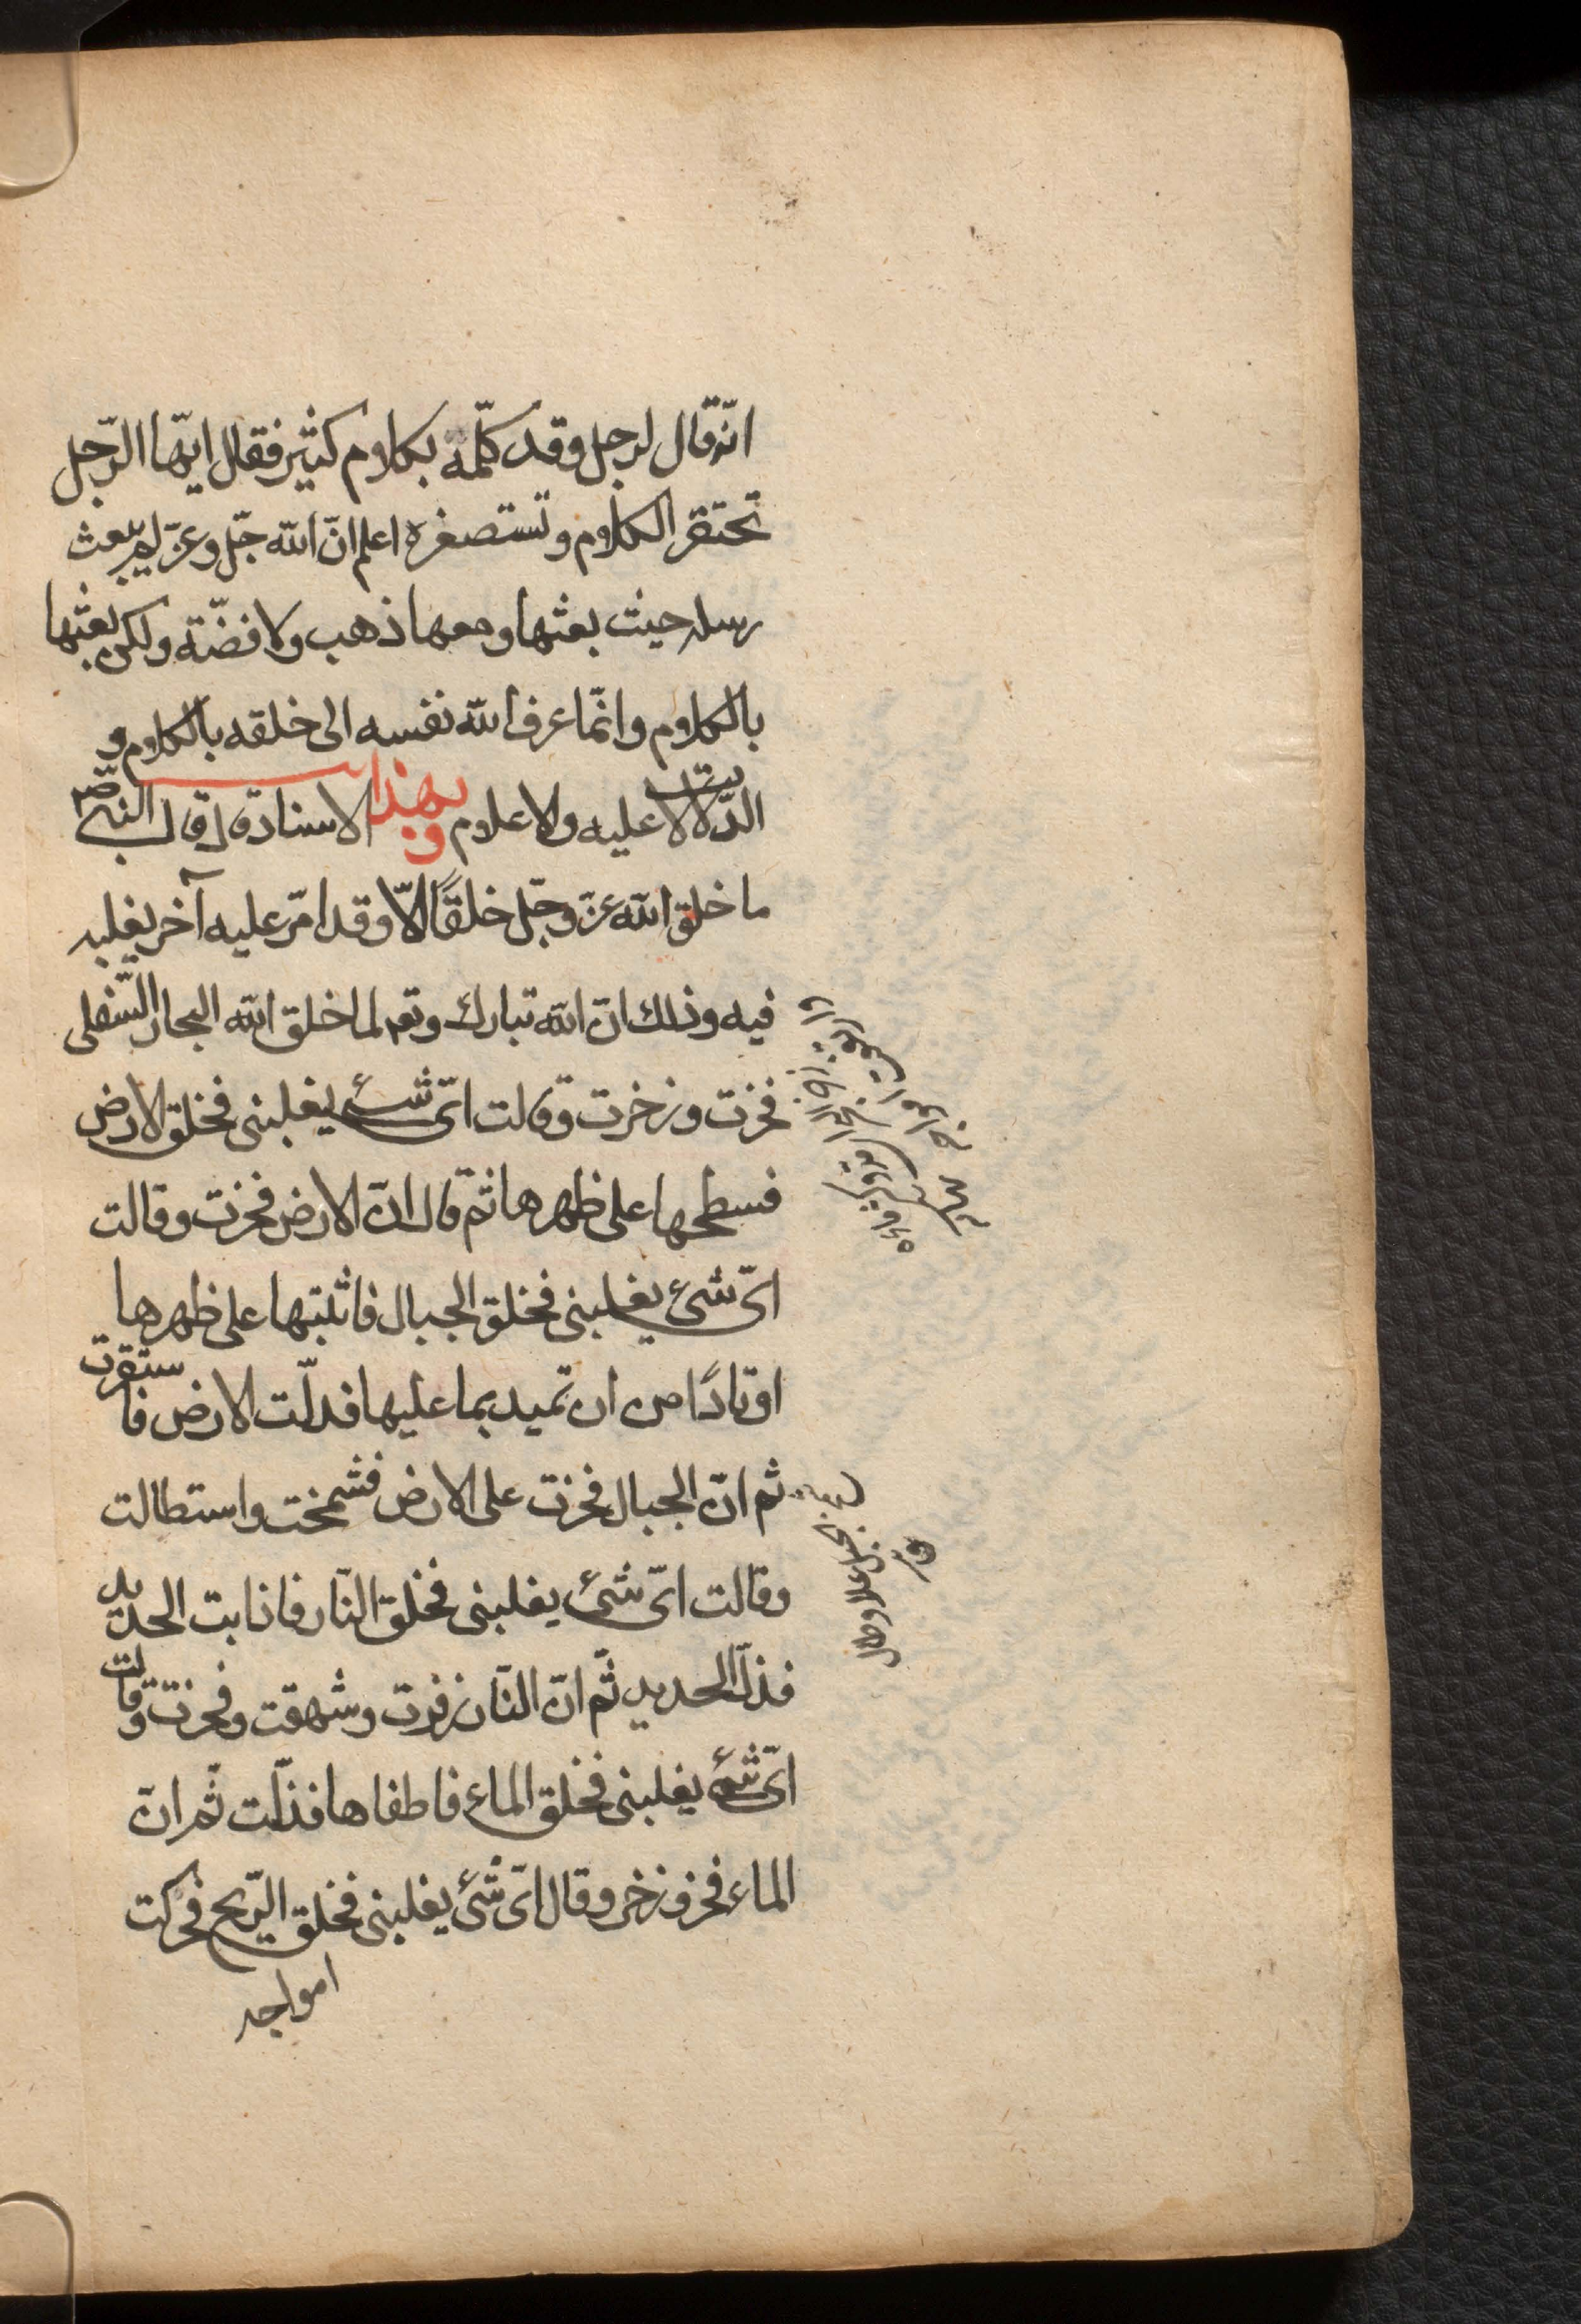 انّه قال لرجل وقد كلّمه بكلام كثير فقال ايّها الرّجل
تحتقر الكلام وتستصغره اعلم انّ الله جلّ وعزّ لم يبعث
رسله حيث بعثها ومعها ذهب ولا فضّة ولكن بعثها
بالكلام وانّما عرف الله نفسه الى خلقه بالكلام و
الدّلالات عليه والاعلام وبهذا الاسناد قال قال النبيّ ص
ما خلق الله عزّ وجلّ خلقًا الّا وقد امّر عليه آخر يغلبه
فيه وذلك انّ الله تبارك وتعه لما خلق الله البحار السّفلى
فخرت وزخرت وقالت اىّ شئ يغلبنى فخلق الارض
فسطحها على ظهرها ثمّ قال انّ الارض فخرت وقالت
اىّ شئ يغلبنى فخلق الجبال فاثبتها على ظهرها
اوتادًا من ان تميد بما عليها فذلّت الارض فاستقرت
ثم انّ الجبال فخرت على الارض فشمخت واستطالت
وقالت اىّ شئ يغلبنى فخلق النّار فاذابت الحديد
فذلّ الحديد ثمّ انّ النّار زفرت وشهقت وفخرت وقالت
اىّ شئ يغلبنى فخلق الماء فاطفاها فذلّت ثمّ انّ
الماء فخر وزخر وقال اىّ شئ يغلبنى فخلق الرّيح فحركت
امواجه